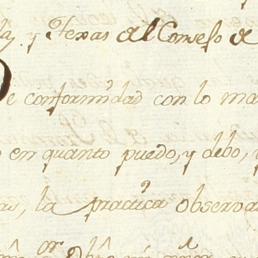 y Texas al Consejo de
De conformidad con lo ma
en quanto puedo, y debo,
as, la practica observa